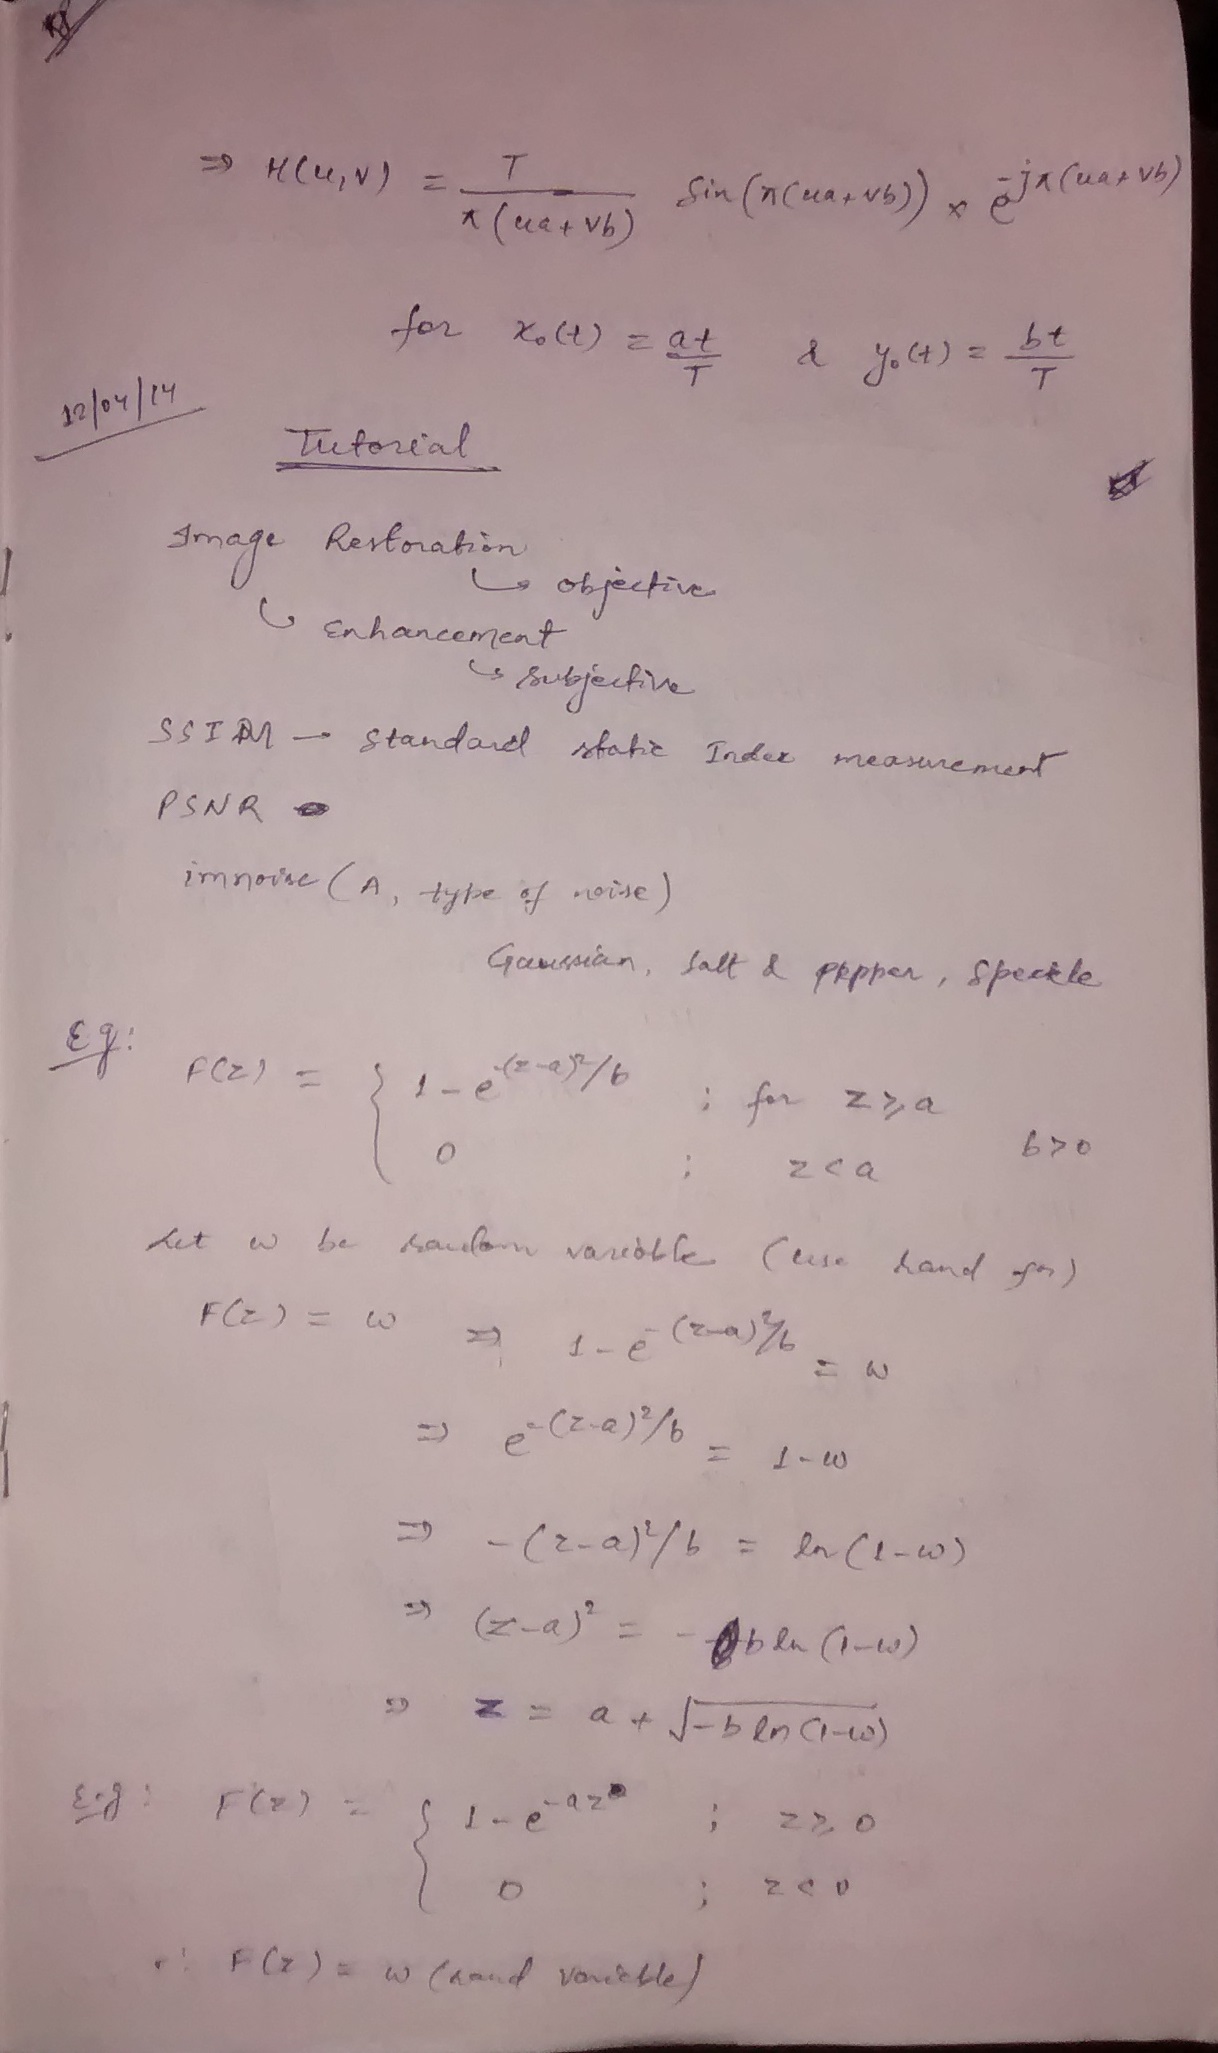 ⇒ H(u,v) = T/π(ua+vb) Sin(π(ua+vb)) × e^-jπ(ua+vb)
for x₀(t) = at/T & y₀(t) = bt/T
12/04/14
Tutorial
Image Restoration
↳ objective
↳ enhancement
↳ subjective
SSIM → standard static Index measurement
PSNR
imnoise(A, type of noise)
Gaussian, salt & pepper, speckle
Eg: F(z) = { 1 - e^-(z-a)²/b ; for z ≥ a
0 ; z < a b > 0
Let w be random variable (use rand fn)
F(z) = w ⇒ 1 - e^-(z-a)²/b = w
⇒ e^-(z-a)²/b = 1-w
⇒ -(z-a)²/b = ln(1-w)
⇒ (z-a)² = -b ln(1-w)
⇒ z = a + √-b ln(1-w)
Eg: F(z) = { 1 - e^-az ; z ≥ 0
0 ; z < 0
∵ F(z) = w (rand variable)